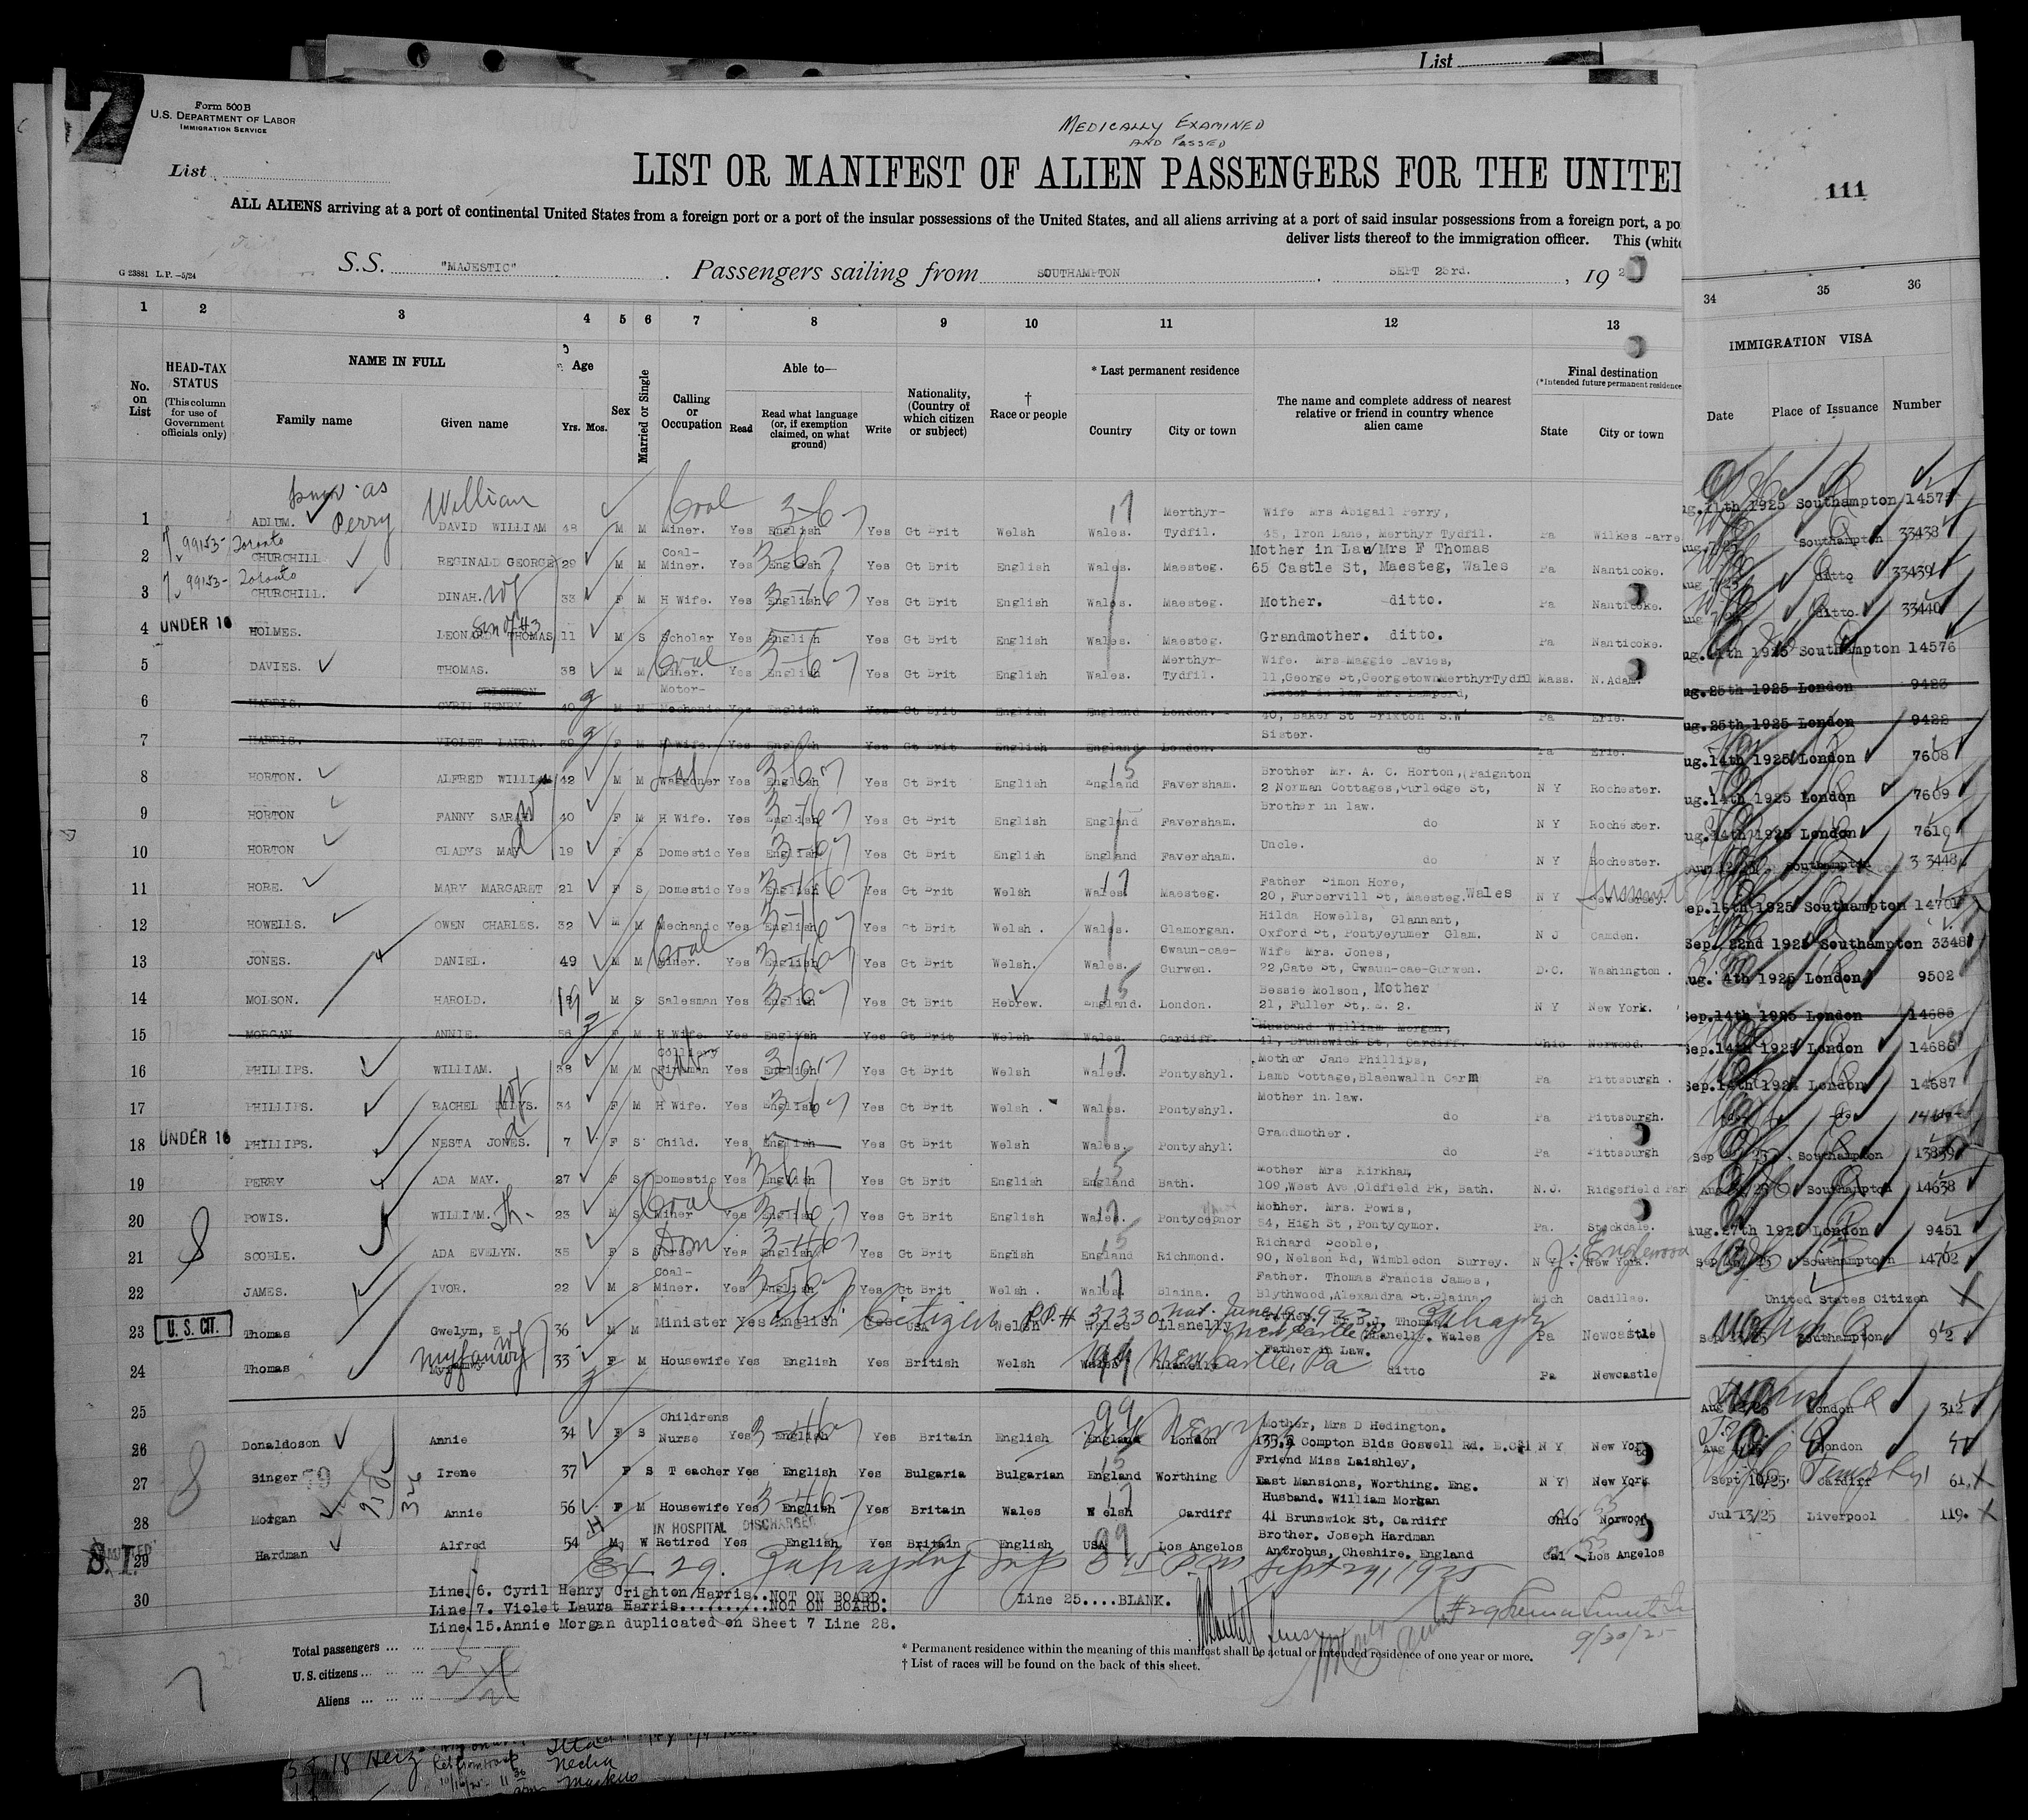 List
Form 500 B
U.S. DEPARTMENT OF LABOR
IMMIGRATION SERVICE
MEDICALLY EXAMINED
AND PASSED
List
LIST OR MANIFEST OF ALIEN PASSENGERS FOR THE UNITE
111
ALL ALIENS arriving at a port of continental United States from a foreign port or a port of the insular possessions of the United States, and all aliens arriving at a port of said insular possessions from a foreign port, a po
deliver lists thereof to the immigration officer. This (white
G 23881 L.P.—5/24
S.S. "MAJESTIC" . Passengers sailing from SOUTHAMPTON , SEPT 23rd. , 19 2
1 2 3 4 5 6 7 8 9 10 11 12 13 34 35 36
No. on List
HEAD-TAX STATUS (This column for use of Government officials only)
NAME IN FULL
Family name Given name
Age
Yrs. Mos.
Sex
Married or Single
Calling or Occupation
Able to—
Read Read what language (or, if exemption claimed, on what ground) Write
Nationality, (Country of which citizen or subject)
† Race or people
* Last permanent residence
Country City or town
The name and complete address of nearest relative or friend in country whence alien came
Final destination
(*Intended future permanent residence
State City or town
IMMIGRATION VISA
Date Place of Issuance Number
1 ADLUM. Perry William DAVID WILLIAM 48 M M Coal Miner. Yes English Yes Gt Brit Welsh Wales. Merthyr-Tydfil. Wife Mrs Abigail Perry, 45, Iron Lane, Merthyr Tydfil. Pa Wilkes Barre
ug.11th 1925 Southampton 14575
2 99153- Toronto CHURCHILL REGINALD GEORGE 29 M M Coal-Miner. Yes English Yes Gt Brit English Wales. Maesteg. Mother in Law Mrs F Thomas 65 Castle St, Maesteg, Wales Pa Nanticoke.
Southampton 33438
3 99153- Toronto CHURCHILL. DINAH. wf 33 F M H Wife. Yes English Yes Gt Brit English Wales. Maesteg. Mother. ditto. Pa Nanticoke.
ditto 33439
4 UNDER 16 HOLMES. LEONARD THOMAS son of #3 11 M S Scholar Yes English Yes Gt Brit English Wales. Maesteg. Grandmother. ditto. Pa Nanticoke.
ditto. 33440
5 DAVIES. THOMAS. 38 M M Coal Miner. Yes English Yes Gt Brit English Wales. Merthyr-Tydfil. Wife. Mrs Maggie Davies, 11, George St, Georgetown Merthyr Tydfil Mass. N. Adam
ug.11th 1925 Southampton 14576
6 HARRIS. CRIGHTON CYRIL HENRY 40 M M Motor-Mechanic Yes English Yes Gt Brit English England London. Sister in law Mrs Lampord, 40, Baker St Brixton S.W Pa Erie.
ug.25th 1925 London 9423
7 HARRIS. VIOLET LAURA. 39 F M H Wife. Yes English Yes Gt Brit English England London. Sister. do Pa Erie.
ug.25th 1925 London 9422
8 HORTON. ALFRED WILLIAM 42 M M Waggoner Yes English Yes Gt Brit English England Faversham. Brother Mr. A. C. Horton, (Paignton 2 Norman Cottages, Curledge St, N Y Rochester.
ug.14th 1925 London 7608
9 HORTON FANNY SARAH 40 F M H Wife. Yes English Yes Gt Brit English England Faversham. Brother in law. do N Y Rochester.
ug.14th 1925 London 7609
10 HORTON GLADYS MAY 19 F S Domestic Yes English Yes Gt Brit English England Faversham. Uncle. do N Y Rochester.
ug.14th 1925 London 7610
11 HORE. MARY MARGARET 21 F S Domestic Yes English Yes Gt Brit Welsh Wales. Maesteg. Father Simon Hore, 20, Furbervill St, Maesteg. Wales N Y New Jersey. Summit
Southampton 3 3448
12 HOWELLS. OWEN CHARLES. 32 M M Mechanic Yes English Yes Gt Brit Welsh. Wales. Glamorgan. Hilda Howells, Glannant, Oxford St, Pontyeyumer Glam. N J Camden.
ep.15th 1925 Southampton 14701
13 JONES. DANIEL. 49 M M Coal Miner. Yes English Yes Gt Brit Welsh. Wales. Gwaun-cae-Gurwen. Wife Mrs. Jones, 22, Gate St, Gwaun-cae-Gurwen. D.C. Washington.
Sep. 22nd 1925 Southampton 3348
14 MOLSON. HAROLD. 19 M S Salesman Yes English Yes Gt Brit Hebrew. England. London. Bessie Molson, Mother 21, Fuller St, E. 2. N Y New York.
ug. 4th 1925 London 9502
15 MORGAN ANNIE. 56 F M H Wife. Yes English Yes Gt Brit Welsh Wales. Cardiff. Husband William Morgan, 41, Brunswick St, Cardiff. Ohio Norwood.
Sep.14th 1925 London 14685
16 PHILLIPS. WILLIAM. 38 M M Colliery Fireman Yes English Yes Gt Brit Welsh Wales. Pontyshyl. Mother Jane Phillips, Lamb Cottage, Blaenwalln Carm Pa Pittsburgh.
Sep.14th 1925 London 14686
17 PHILLIPS. RACHEL wf 34 F M H Wife. Yes English Yes Gt Brit Welsh. Wales. Pontyshyl. Mother in law. do Pa Pittsburgh.
Sep.14th 1925 London 14687
18 UNDER 16 PHILLIPS. NESTA JONES. 7 F S Child. Yes English Yes Gt Brit Welsh Wales. Pontyshyl. Grandmother. do Pa Pittsburgh
do do
19 PERRY ADA MAY. 27 F S Domestic Yes English Yes Gt Brit English England Bath. Mother Mrs Kirkham, 109, West Ave, Oldfield Pk, Bath. N.J. Ridgefield Par
Sep Southampton 13859
20 POWIS. WILLIAM. Th. 23 M S Coal Miner Yes English Yes Gt Brit English Wales. Pontycepnor Mother. Mrs. Powis, 54, High St, Pontyqymor. Pa. Stockdale.
Southampton 14638
21 SCOBLE. ADA EVELYN. 35 F S Dom Nurse Yes English Yes Gt Brit English England Richmond. Richard Scoble, 90, Nelson Rd, Wimbledon Surrey. N Y New York. Englewood
Aug.27th 1925 London 9451
22 JAMES. IVOR. 22 M S Coal-Miner. Yes English Yes Gt Brit Welsh. Wales. Blaina. Father. Thomas Francis James, Blythwood, Alexandra St. Blaina Mich Cadillac.
Southampton 14702
23 U. S. CIT. Thomas Gwelym, E 36 M M Minister Yes English Yes USA Citizen P.P.# 37330 Nat. June 19-1923 Welsh Wales Llanelly Father. D.J. Thomas Llanelly. Wales New Castle Pa Newcastle
United States Citizen
24 Thomas Myfanwy wf 33 F M Housewife Yes English Yes British Welsh Wales 99 Llanelly New Castle, Pa Father in Law. ditto Pa Newcastle
Southampton 912
25
26 Donaldson Annie 34 F S Childrens Nurse Yes English Yes Britain English England 99 London New York Mother, Mrs D Hedington. Compton Blds Goswell Rd. E.C.1 N Y New York
London 312
27 Singer Irene 37 F S Teacher Yes English Yes Bulgaria Bulgarian England Worthing Friend Miss Laishley, East Mansions, Worthing. Eng. N Y New York
London
28 Morgan Annie 56 F M Housewife Yes English Yes Britain Wales Welsh Cardiff Husband. William Morgan 41 Brunswick St, Cardiff Ohio Norwood
Sept 10/25. Cardiff 61.
IN HOSPITAL DISCHARGED
29 S.I. ADMITTED Hardman Alfred 54 M W Retired Yes English Yes Britain English USA 99 Los Angelos Brother. Joseph Hardman Antrobus, Cheshire. England Cal Los Angelos
Jul 13/25 Liverpool 119.
Sept 29, 1925
30
Line 6. Cyril Henry Crighton Harris..NOT ON BOARD.
Line 7. Violet Laura Harris..........NOT ON BOARD.
Line 15. Annie Morgan duplicated on Sheet 7 Line 28.
Line 25....BLANK.
9/30/25
Total passengers
U.S. citizens
Aliens
* Permanent residence within the meaning of this manifest shall be actual or intended residence of one year or more.
† List of races will be found on the back of this sheet.
7